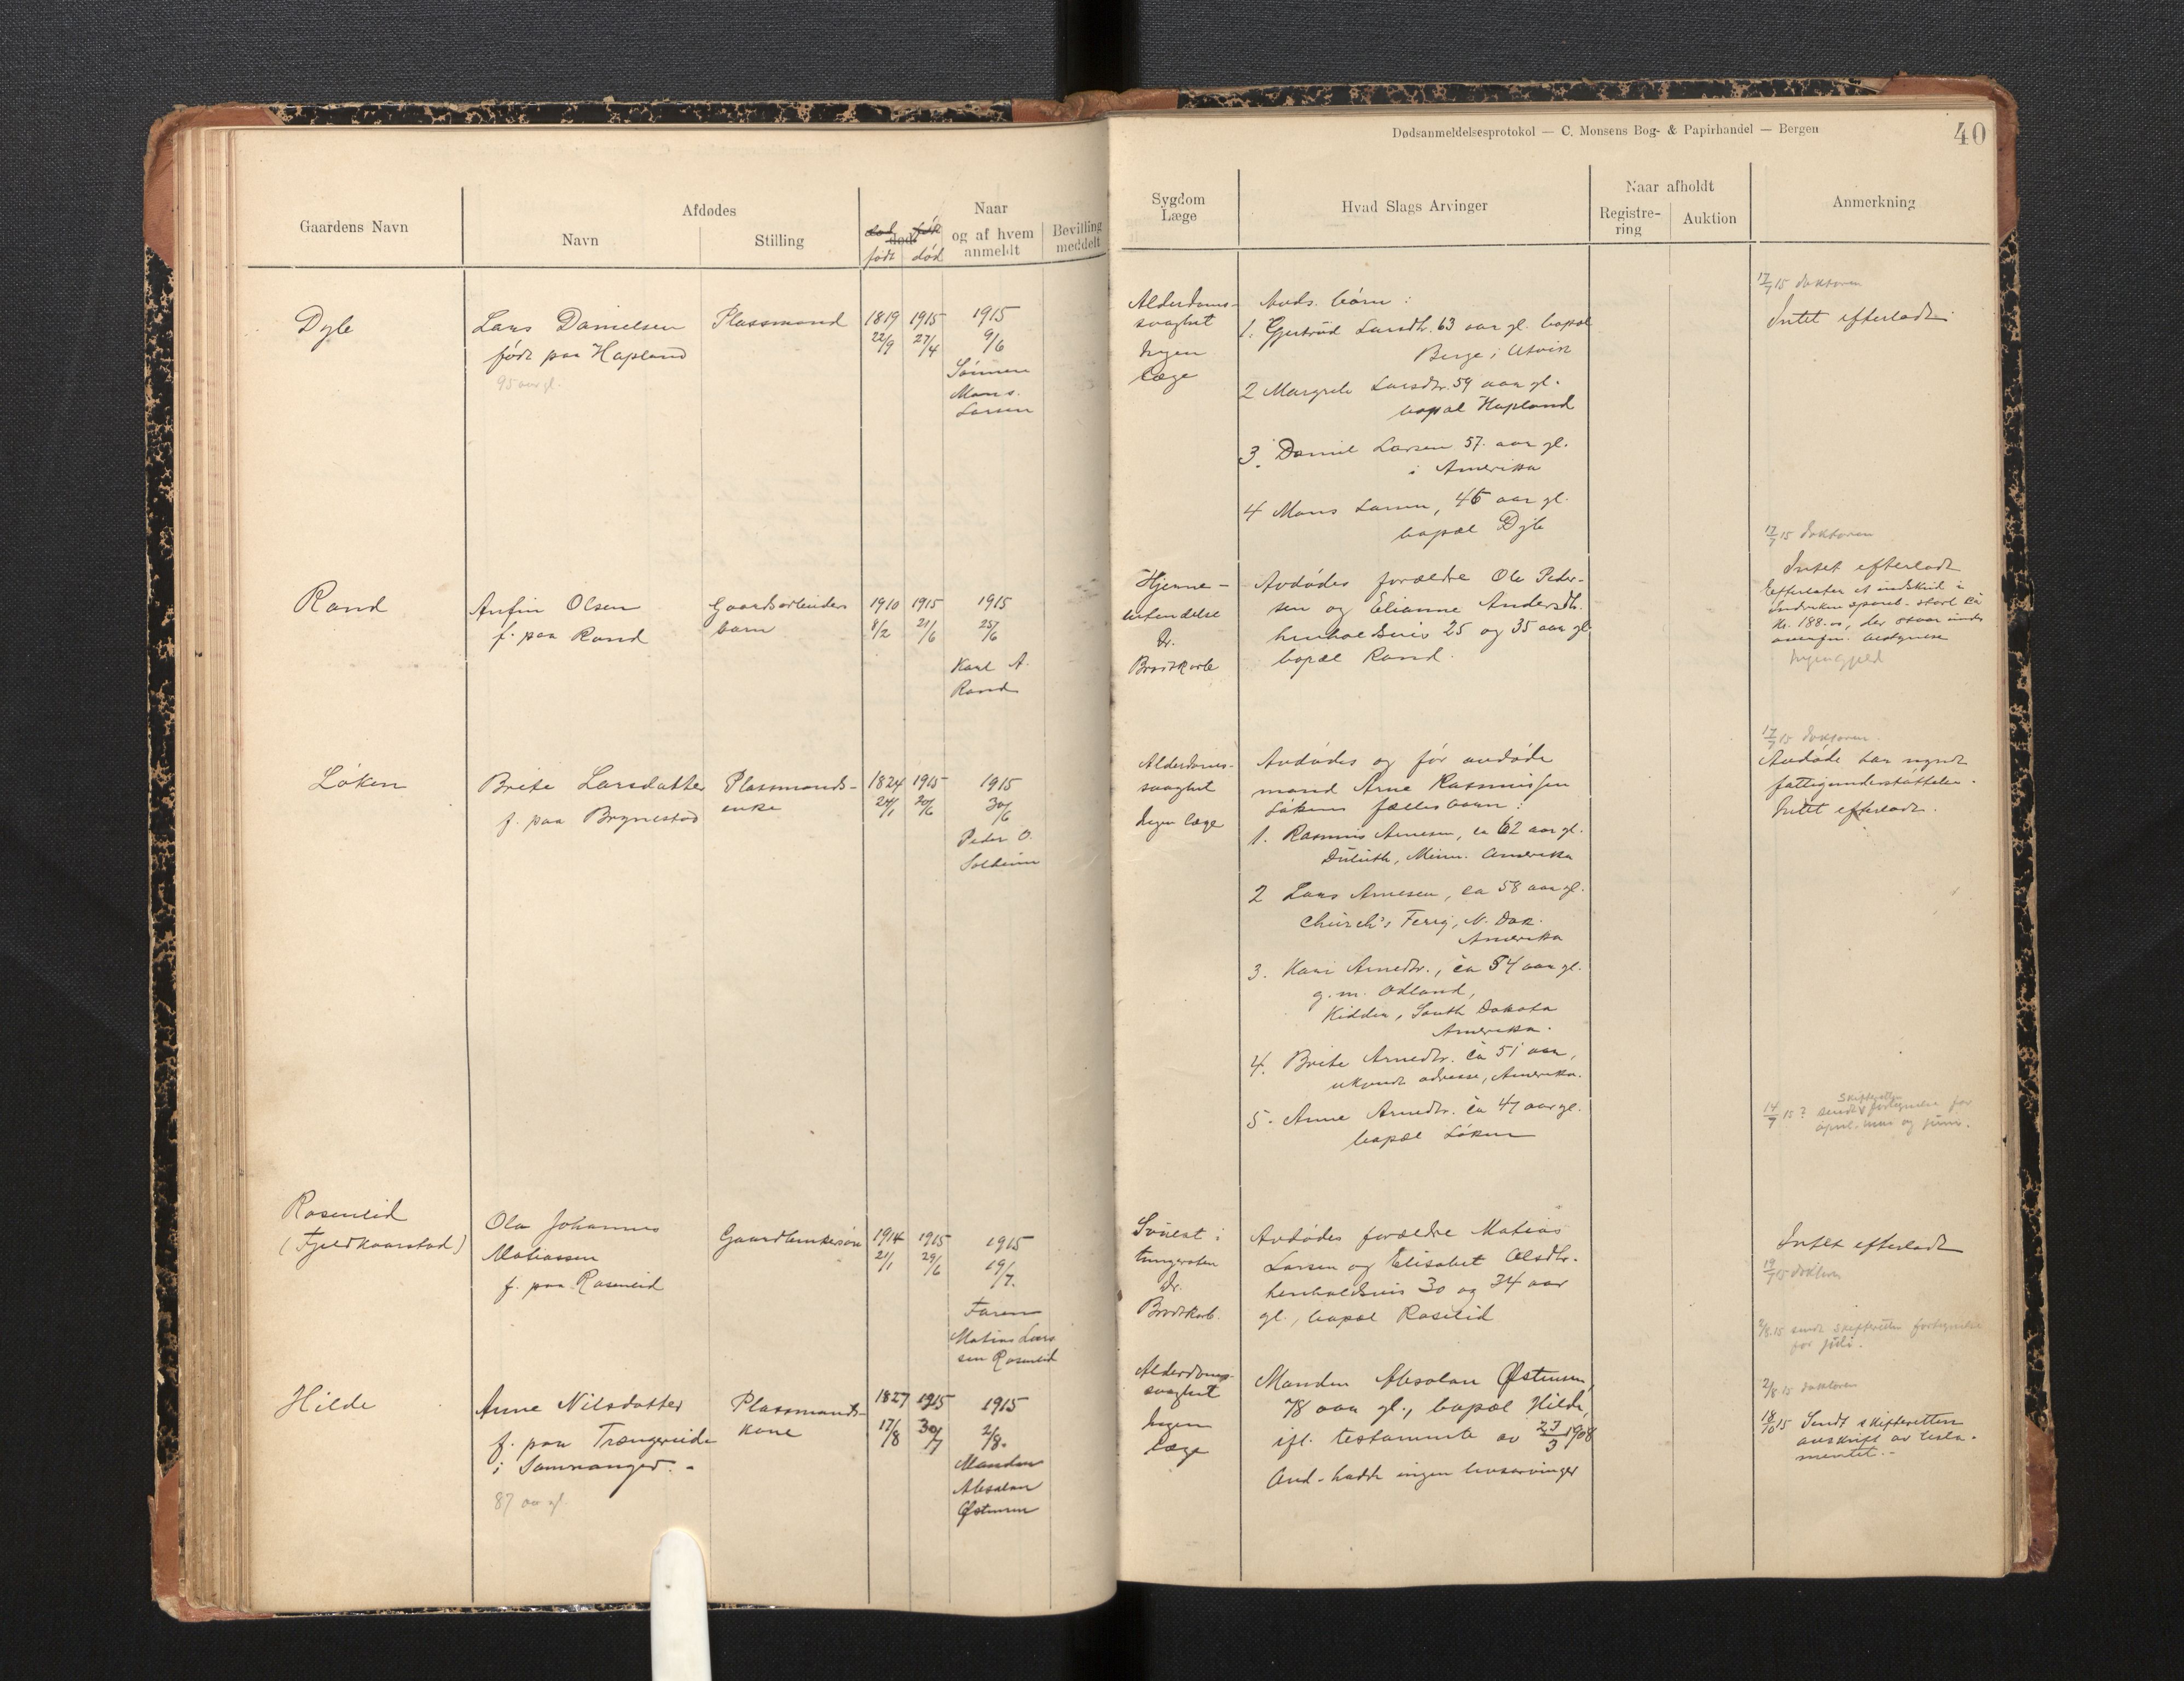 Dødsanmeldelsesprotokol — C. Monsens Bog- & Papirhandel — Bergen
40
Gaardens Navn
Afdødes
Navn
Stilling
født
død
Naar
og af hvem
anmeldt
Bevilling
meddelt
Sygdom
Læge
Hvad Slags Arvinger
Naar afholdt
Registre-
ring
Auktion
Anmerkning
Dyle
Lars Danielsen
født paa Hapland
95 aar gl.
Plassmand
1819
22/9
1915
27/4
1915
9/6
Sønnen
Mons
Larsen
Alderdoms-
svaghet
Ingen
læge
Avds. børn:
1. Gjertrud Larsdtr. 63 aar gl. bopæl
Berge i Utvik
2 Margrete Larsdtr. 59 aar gl.
bopæl Hapland
3. Daniel Larsen 57. aar gl.
i Amerika
4 Mons Larsen, 45 aar gl.
bopæl Dyle
17/7 15 doktoren
Intet efterladt
Rand
Anfin Olsen
f. paa Rand
Gaardsarbeiders
barn
1910
8/2
1915
21/6
1915
25/6
Karl A.
Rand
Hjerne-
betændelse
Dr.
Brodtkorb
Avdødes forældre Ole Peder-
sen og Elianne Andersdtr.
henholdsvis 25 og 35 aar gl
bopæl Rand.
17/7 15 doktoren
Intet efterladt
Efterlater et indskud i
Indviken spareb. stort ca
kr. 188.00, der staar under
overfm. bestyrelse
Ingen gjeld
Løken
Brite Larsdatter
f. paa Brynestad
Plassmands-
enke
1824
24/1
1915
20/6
1915
30/6
Peder O.
Solheim
Alderdoms-
svaghet
Ingen læge
Avdødes og før avdøde
mand Arne Rasmussen
Løkens fælles børn:
1. Rasmus Arnesen, ca 62 aar gl.
Duluth, Minn. Amerika
2 Lars Arnesen, ca 58 aar gl.
Church's Ferry, N. Dak.
Amerika
3. Kari Arnedtr., ca 54 aar gl.
g. m. Odland,
Kidder, South Dakota
Amerika.
4. Brite Arnedtr. ca 51 aar,
ukjendt adresse, Amerika.
5. Anne Arnedtr. ca 47 aar gl.
bopæl Løken
17/7 15 doktoren.
Avdøde har nydt
fattigunderstøttelse.
Intet efterladt.
14/7 15? sendt skifteretten fortegnelse for
april, mai og juni.
Roseneid
(Fjeldkaarstad)
Ola Johannes
Matiassen
f. paa Roseneid
Gaardbrukersøn
1914
21/1
1915
29/6
1915
19/7.
Faren
Matias Lars
sen Roseneid
Svulst i
tungeroten
Dr.
Brodtkorb.
Avdødes forældre Matias
Larsen og Elisabet Olsdtr.
henholdsvis 30 og 34 aar
gl., bopæl Roseid
Intet efterladt
19/7 15 doktoren
2/8.15 sendt skifteretten fortegnelse
for juli.
Hilde
Anne Nilsdatter
f. paa Trængereide
i Samnanger. -
87 aar gl.
Plassmands-
kone
1827
17/8
1915
30/7
1915
2/8.
Manden
Absalon
Østensen
Alderdoms-
svaghet
Ingen
læge
Manden Absalon Østensen,
78 aar gl., bopæl Hilde,
ifl. testamente av 27/3 1908
Avd. hadde ingen livsarvinger
2/8 15 doktoren
18/10 15 Sendt skifteretten
avskrift av testa-
mentet.-